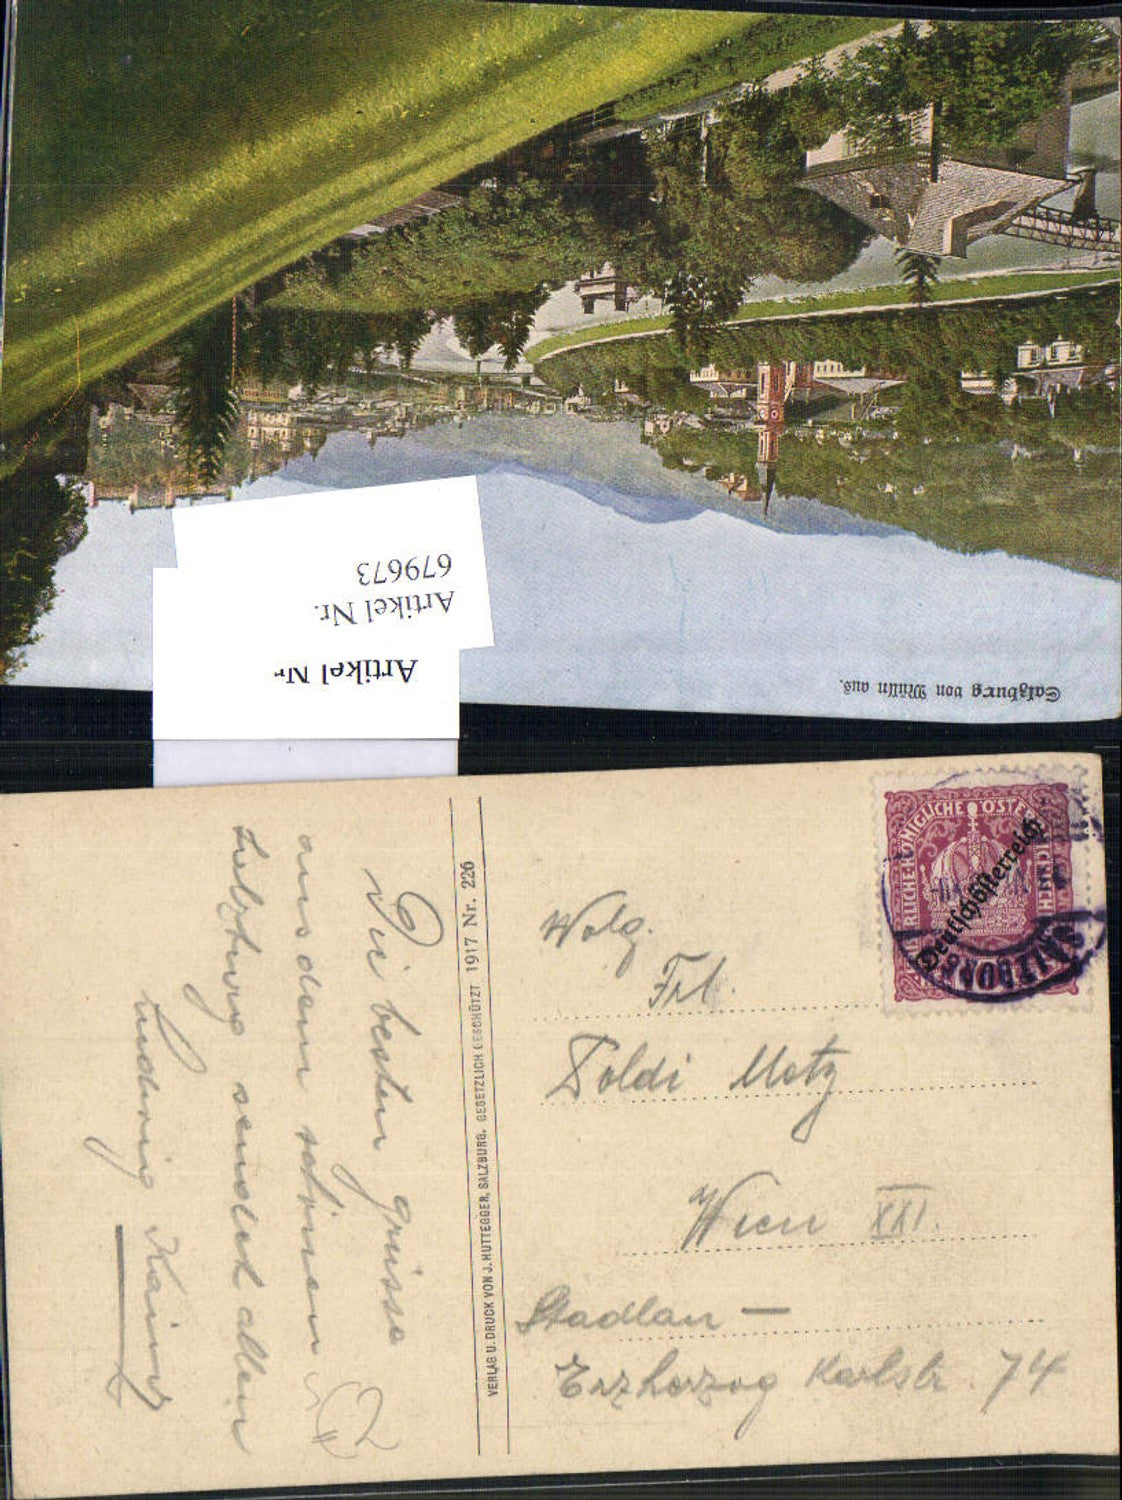 Salzburg von Mülln aus.
Artikel Nr
Artikel Nr.
679673
KÖNIGLICHE ÖSTERREICH
Deutschösterreich
SALZBURG
Wolg.
Frl.
Poldi Metz
Wien XXI.
Stadlau —
Erzherzog Karlstr. 74
VERLAG U. DRUCK VON J. HUTTEGGER, SALZBURG. GESETZLICH GESCHÜTZT 1917 Nr. 226
Die besten Grüsse
aus dem schönen
Salzburg sendet allen
Ludwig